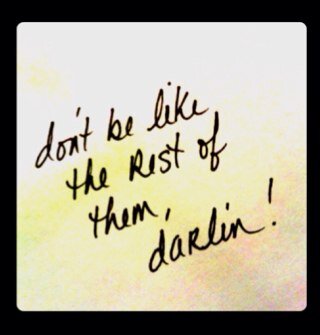 don't be like
the Rest of
them,
daRlin!